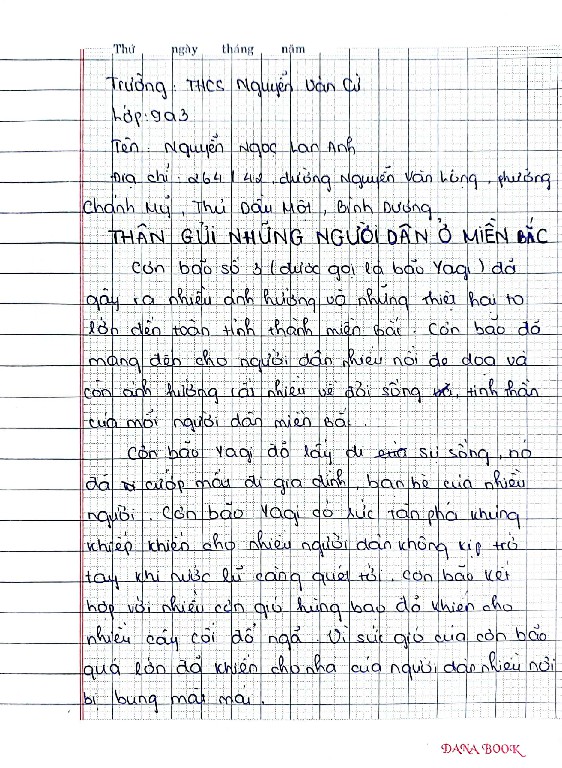 Thứ ngày tháng năm
Trường : THCS Nguyễn Văn Cừ
Lớp : 9a3
Tên : Nguyễn Ngọc Lan Anh
Địa chỉ : 264 / 42, đường Nguyễn Văn Lồng, phường
Chánh Mỹ, Thủ Dầu Một, Bình Dương
THÂN GỬI NHỮNG NGƯỜI DÂN Ở MIỀN BẮC
Cơn bão số 3 (được gọi là bão Yagi) đã
gây ra nhiều ảnh hưởng và những thiệt hại to
lớn đến toàn tỉnh thành miền Bắc. Cơn bão đó
mang đến cho người dân nhiều nỗi đe dọa và
còn ảnh hưởng rất nhiều về đời sống, tinh thần
của mỗi người dân miền Bắc.
Cơn bão Yagi đã lấy đi sự sống, nó
đã cướp mất đi gia đình, bạn bè của nhiều
người. Cơn bão Yagi có sức tàn phá khủng
khiếp khiến cho nhiều người dân không kịp trở
tay khi nước lũ càng quét tới. Cơn bão kết
hợp với nhiều cơn gió hung bạo đã khiến cho
nhiều cây cối đổ ngã. Vì sức gió của cơn bão
quá lớn đã khiến cho nhà của người dân nhiều nơi
bị bung mất mái.
DANA BOOK